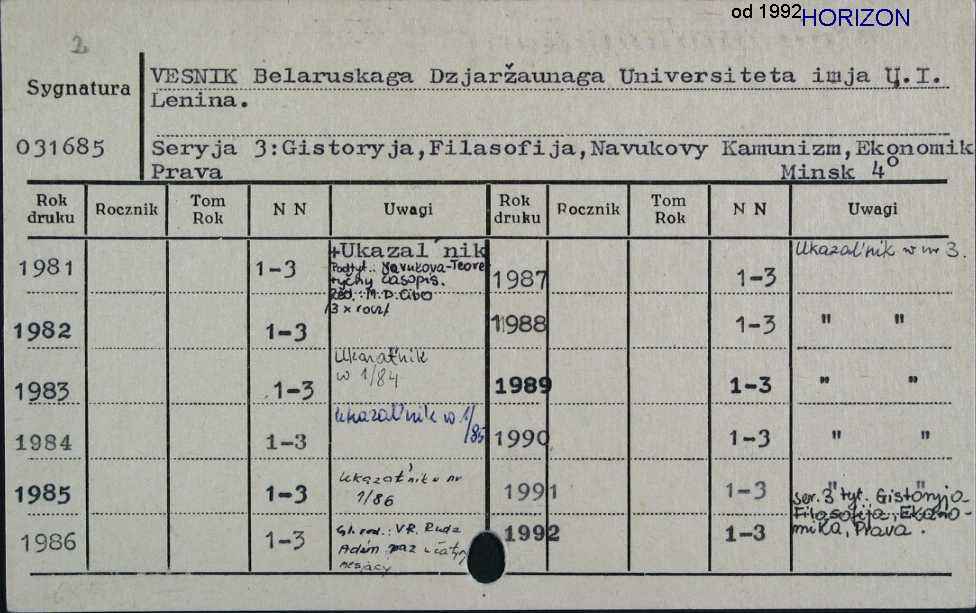 od 1992 HORIZON
2
Sygnatura
031685
VESNIK Belaruskaga Dzjaržaunaga Universiteta imja U.I.
Lenina.
Seryja 3:Gistoryja,Filasofija,Navukovy Kamunizm,Ekonomik
Prava Minsk 4º
Rok druku Rocznik Tom Rok N N Uwagi Rok druku Rocznik Tom Rok N N Uwagi
1981 1-3 +Ukazal'nik
Podtyt.: Navukova-Teore
tyčny časopis.
Red.: M.D.Cibo
/3 x rocz/
1982 1-3
1983 1-3 Ukazal'nik
w 1/84
1984 1-3 Ukazal'nik w 1/
85
1985 1-3 Ukazal'nik w nr
1/86
1986 1-3 Gł. red.: V.R. Ruda
Adzin raz u čatyry
mesjacy
1987 1-3 Ukazal'nik w nr 3.
1988 1-3 " "
1989 1-3 " "
1990 1-3 " "
1991 1-3 " "
1992 1-3 ser. 3 tyt. Gistoryja
Filasofija, Ekano-
mika, Prava.